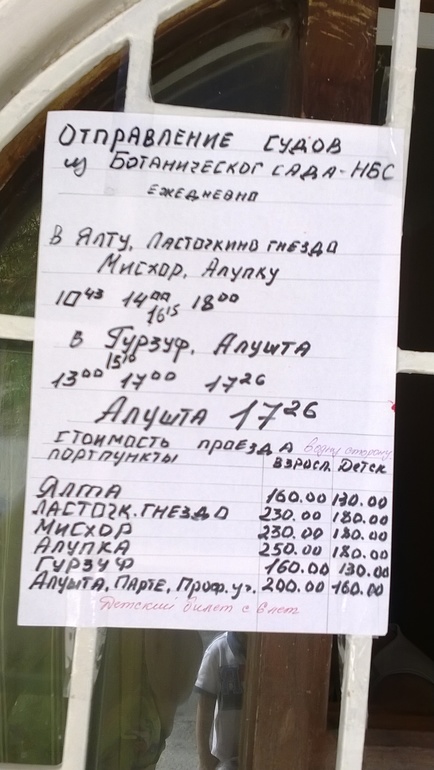 ОТПРАВЛЕНИЕ СУДОВ
из БОТАНИЧЕСКОГ САДА-НБС
ЕЖЕДНЕВНО
В ЯЛТУ, ЛАСТОЧКИНО ГНЕЗДО
МИСХОР, АЛУПКУ
10⁴³ 14⁰⁰ 18⁰⁰
16¹⁵
В ГУРЗУФ, АЛУШТА
13⁰⁰ 17⁰⁰ 17²⁶
АЛУШТА 17²⁶
СТОИМОСТЬ ПРОЕЗДА в одну сторону
ПОРТПУНКТЫ ВЗРОСЛ. ДЕТСК
ЯЛТА 160.00 130.00
ЛАСТОЧК. ГНЕЗДО 230.00 180.00
МИСХОР 230.00 180.00
АЛУПКА 250.00 180.00
ГУРЗУФ 160.00 130.00
АЛУШТА, ПАРТЕ, ПРОФ.УГ. 200.00 160.00
Детский билет с 6 лет